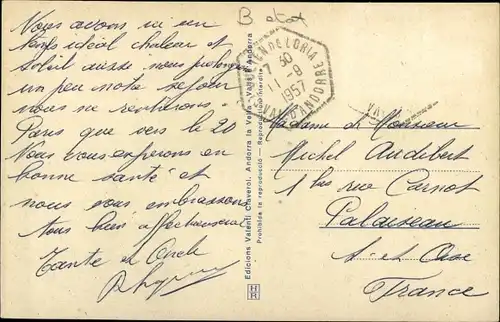 B. etat
Nous avons ici un
temps idéal chaleur et
soleil aussi nous prolongeons
un peu notre séjour
nous ne rentrerons
Paris que vers le 20
Nous vous espérons en
bonne santé et
nous vous embrassons
tous bien affectueusement
Tante et Oncle
Edicions Valentí Claverol. Andorra la Vella - Valls d'Andorra
Prohibida la reproducció - Reproduction interdite
DE LORIA
7 30
11-9
1957
VAL D'ANDORRE
Madame et Monsieur
Michel Audibert
1 bis rue Carnot
Palaiseau
S. et Oise
France